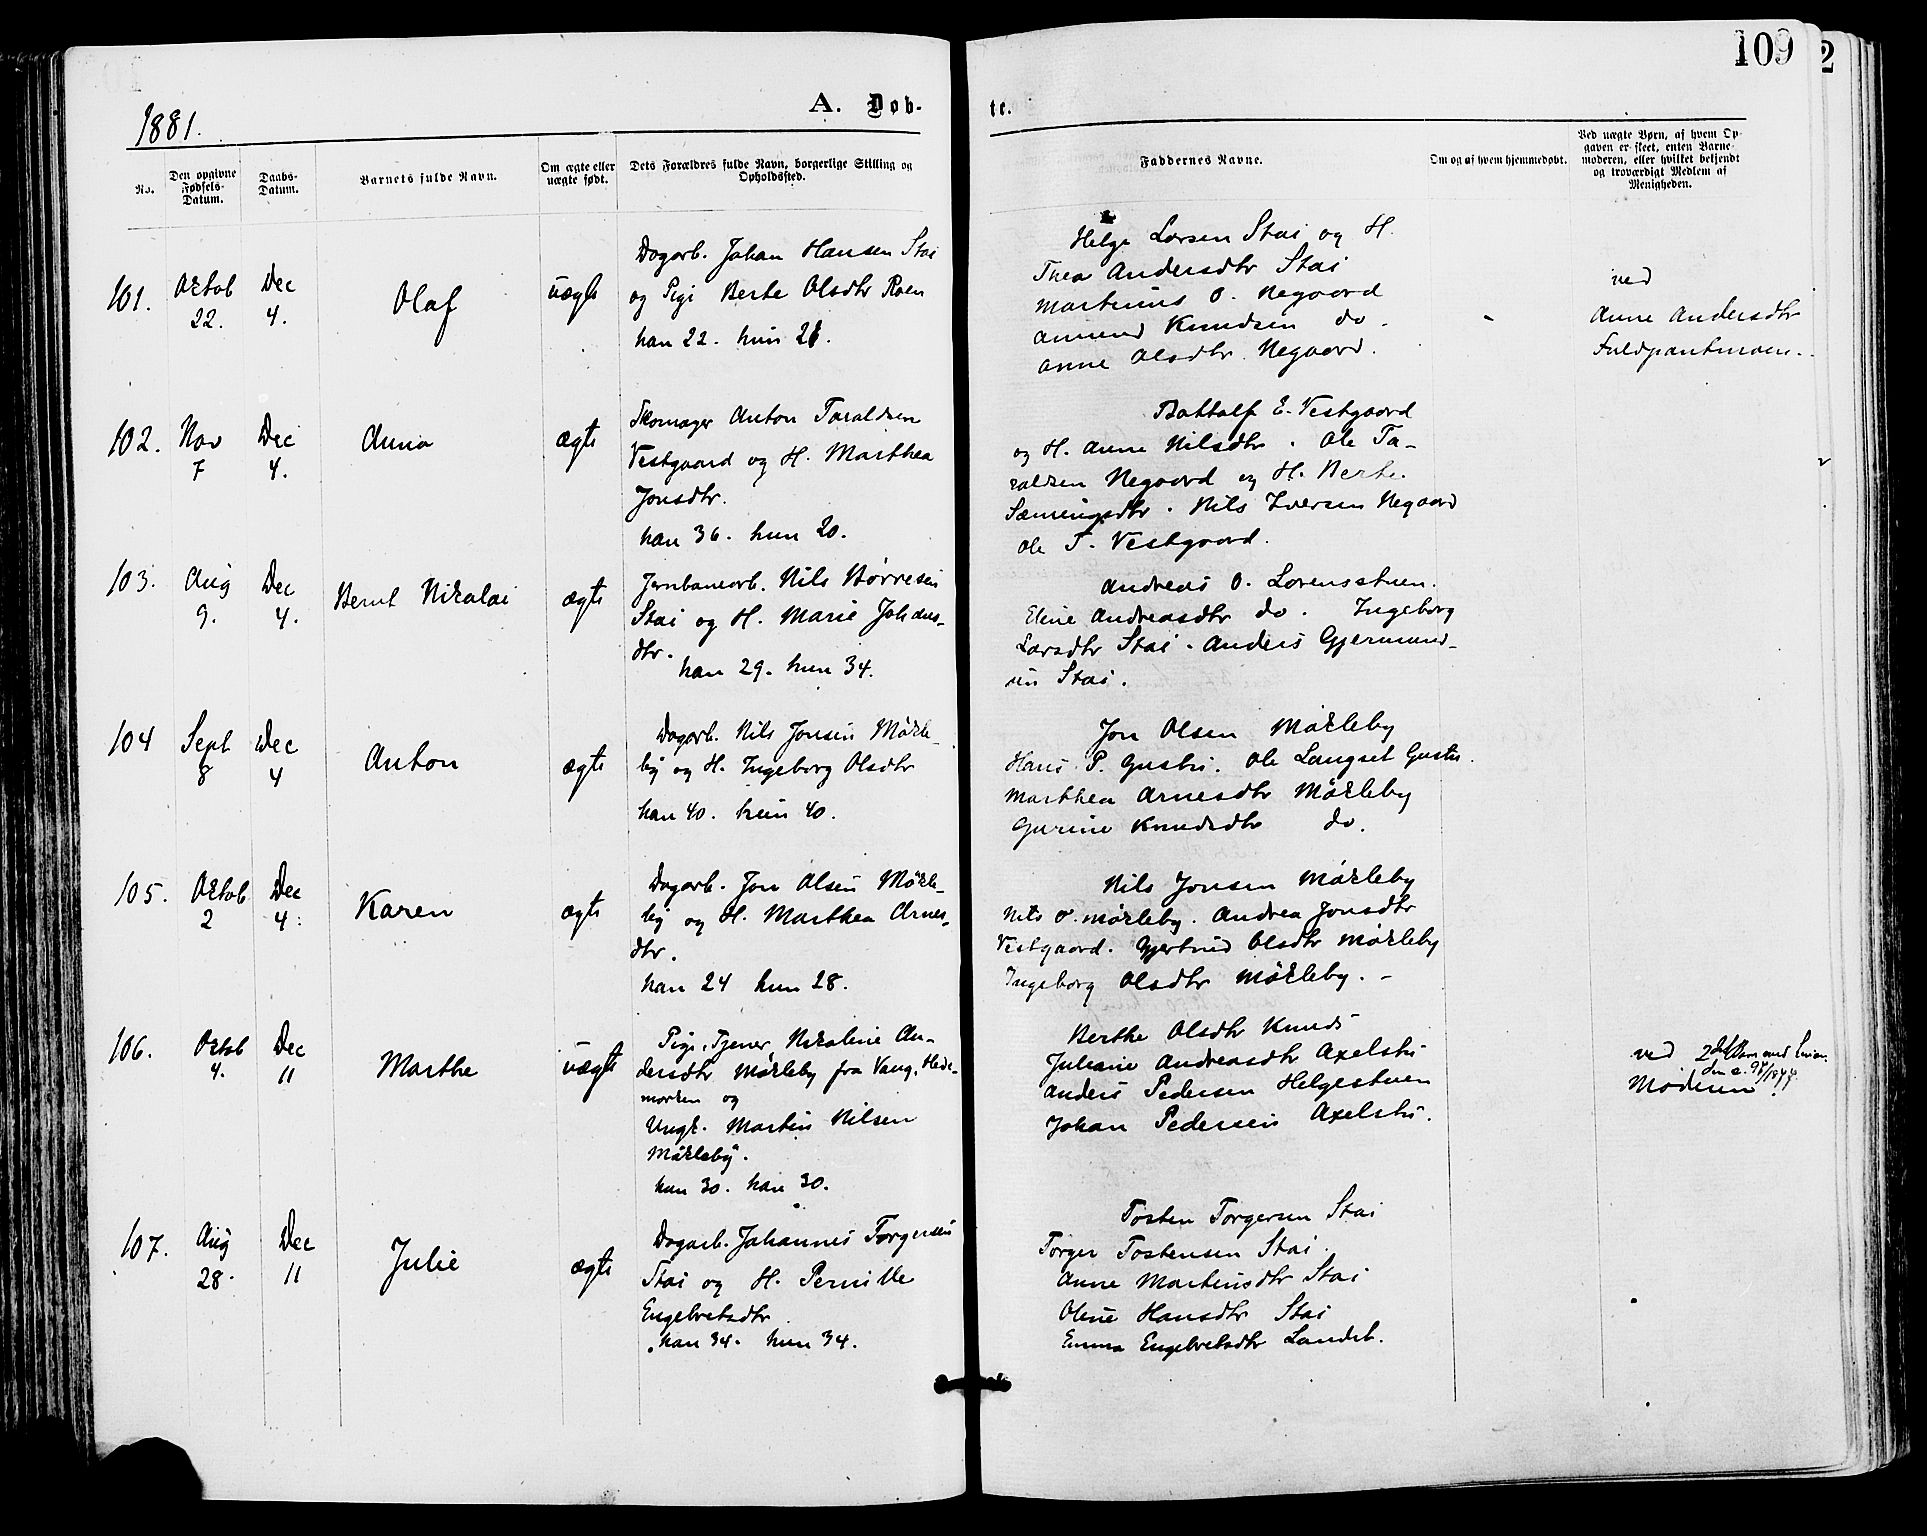 109
2
1881.
A. Døb-
te.
No.
Den opgivne Fødsels-Datum.
Daabs-Datum.
Barnets fulde Navn.
Om ægte eller uægte født.
Dets Forældres fulde Navn, borgerlige Stilling og Opholdssted.
Faddernes Navne.
Om og af hvem hjemmedøbt.
Ved uægte Børn, af hvem Op-
gaven er skeet, enten Barne-
moderen, eller hvilket bekjendt
og troværdigt Medlem af
Menigheden.
101.
Octob
22.
Dec
4.
Olaf
uægte
Dagarb. Johan Hansen Stai
og Pige Berte Olsdtr Roen
han 22. hun 21.
Helge Larsen Stai og H.
Thea Andersdtr Stai
Martinus O. Negaard
Amund Knudsen do.
Anne Olsdtr Negaard.
ved
Anne Andersdtr
102.
Nov
7
Dec
4.
Anna
ægte
Skomager Anton Taraldsen
Vestgaard og H. Marthea
Jonsdtr.
han 36. hun 20.
Bottolf E. Vestgaard
og H. Anne Nilsdtr. Ole Ta-
raldsen Negaard og H. Berte
Sæmingsdtr. Nils Iversen Negaard
Ole T. Vestgaard.
103.
Aug
9.
Dec
4.
Bernt Nikolai
ægte
Jernbanearb. Nils Børresen
Stai og H. Marie Johans-
dtr.
han 29. hun 34.
Andreas O. Lorensstuen.
Eline Andreasdtr do. Ingeborg
Larsdtr Stai. Anders Gjermund-
sen Stai.
104
Sept
8
Dec
4
Anton
ægte
Dagarb. Nils Jonsen Mørkle-
by og H. Ingeborg Olsdtr
han 40. hun 40.
Jon Olsen Møkleby
Hans P. Gustu. Ole Langset Gustu.
Marthea Arnesdtr Møkleby
Gurine Knudsdtr do.
105.
Octob
2
Dec
4.
Karen
ægte
Dagarb. Jon Olsen Møkle-
by og H. Marthea Arnes-
dtr.
han 24 hun 28.
Nils Jonsen Møkleby
Nils O. Møkleby. Andrea Jonsdtr
Vestgaard. Gjertrud Olsdtr Møkleby
Ingeborg Olsdtr Møkleby.
106.
Octob
4.
Dec
11
Marthe
uægte
Pige, Tjener, Nikoline An-
dersdtr Møkleby fra Vang, Hede-
marken og
Ungk. Martin Nilsen
Møkleby.
hun 30. han 30.
Berthe Olsdtr Knuds
Juliane Andreasdtr Axelstu
Anders Pedersen Helgestuen
Johan Pedersen Axelstu.
ved
Moderen
107.
Aug
28.
Dec
11
Julie
ægte
Dagarb. Johannes Torgersen
Stai og H. Pernille
Engebretsdtr
han 34. hun 34.
Tosten Torgersen Stai
Torger Tostensen Stai.
Anne Martinsdtr Stai
Oline Hansdtr Stai
Emma Engebretsdtr Landet.